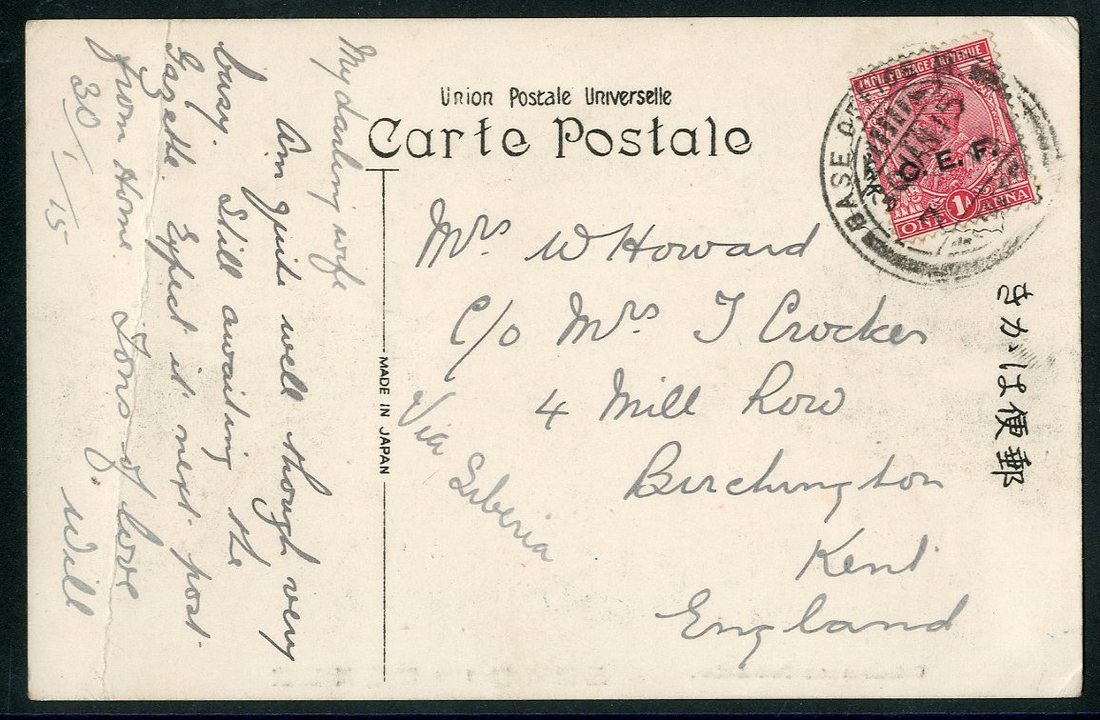 Union Postale Universelle
Carte Postale
INDIA POSTAGE & REVENUE
C. E. F.
ONE 1A ANNA
BASE OF
きかは便郵
MADE IN JAPAN
My darling wife
Am quite well though very
busy. Still awaiting the
Gazette. Expect it next post
from Home. Tons of love
30/1/15 Will
Mrs W Howard
C/o Mrs T Crocker
4 Mill Row
Birchington
Kent
England
Via Siberia